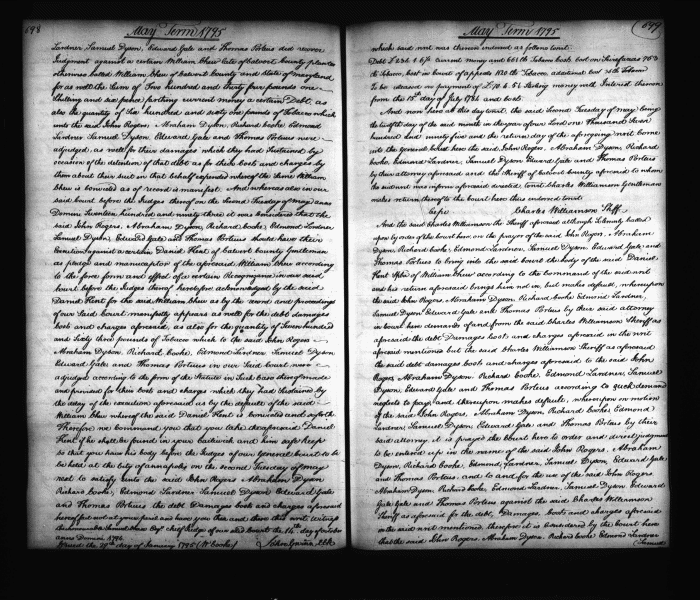 698
May Term 1795
Lardner, Samuel Dyson, Edward Gale and Thomas Porteus did recover
Judgment against a certain William Shew late of Calvert County planter
otherwise called William Shew of Calvert County and State of Maryland
for as well the sum of Two hundred and thirty four pounds one
Shilling and six pence farthing current money a certain Debt, as
also the quantity of Six hundred and sixty one pounds of Tobacco which
unto the said John Rogers, Abraham Dyson, Richard Cooke, Edmond
Lardner Samuel Dyson, Edward Gale and Thomas Porteus were
adjudged, as well for their damages which they had sustained by
occasion of the detention of that debt as for their costs and charges by
them about their suit in that behalf expended whereof the same William
Shew is convicted as of record is manifest. And whereas also in our
said Court before the Judges thereof on the second Tuesday of May anno
Domini Seventeen hundred and ninety three it was considered that the
said John Rogers, Abraham Dyson, Richard Cooke, Edmond Lardner
Samuel Dyson, Edward Gale and Thomas Porteus should have their
Execution against a certain Daniel Kent of Calvert County Gentleman
as pledge and manucaptor of the aforesaid William Shew according
to the force form and effect of a certain Recognizance in our said
Court before the Judges thereof heretofore acknowledged by the said
Daniel Kent for the said William Shew as by the record and proceedings
of our said Court manifestly appears as well for the debt damages
costs and charges aforesaid, as also for the quantity of Seven hundred
and sixty three pounds of Tobacco which to the said John Rogers
Abraham Dyson, Richard, Cooke, Edmond Lardner Samuel Dyson
Edward Gale and Thomas Porteus in our said Court were
adjudged according to the form of the Statute in such case thereof made
and provided for their cost and charges which they had sustained by
the delay of the execution aforesaid as by the default of the said
William Shew whereof the said Daniel Kent is convicted and so forth
Therefore we command you that you take the aforesaid Daniel
Kent if he shall be found in your bailiwick and him safe keep
so that you have his body before the Judges of our General Court to be
be held at the City of Annapolis on the second Tuesday of May
next to satisfy unto the said John Rogers Abraham Dyson
Richard Cooke, Edmond Lardner Samuel Dyson Edward Gale
and Thomas Porteus the debt Damages costs and charges aforesaid
hereof fail not at your peril and have you then and there this writ Witness
the Honorable Samuel Chase Esqr. Chief Judge of our said Court the 14th day of October
anno Domini 1794
Issued the 20th day of January 1795 (W Cooke)
May Term 1795
699
which said writ was thereon indorsed as follows to wit.
Debt £234.1.6¼ Current money and 661 lb Tobacco costs, cost on Scirefacias 763
lb Tobacco, cost in Court of appeals lb Tobacco additional cost lb Tobacco
To be released on payment of Sterling money with Interest thereon
from the 15th day of July 1786 and costs.
And now here at this day to wit, the said Second Tuesday of May being
the twelfth day of the said month in the year of our Lord one Thousand Seven
hundred and ninety five and the return day of the aforegoing writ come
into the General Court here the said John Rogers, Abraham Dyson, Richard
Cooke, Edmond Lardner, Samuel Dyson, Edward Gale and Thomas Porteus
by their attorney aforesaid and the Sheriff of Calvert County aforesaid to whom
the said writ was in form aforesaid directed to wit Charles Williamson Gentleman
makes return thereof to the Court here thus endorsed to wit
Cepi Charles Williamson Shff.
And the said Charles Williamson the Sheriff aforesaid although Solemnly called
upon by order of the Court here, on the prayer of the said John Rogers, Abraham
Dyson, Richard Cooke, Edmond Lardner, Samuel Dyson, Edward Gale, and
Thomas Porteus to bring into the said Court the body of the said Daniel
Kent of William Shew according to the Command of the said writ and
his return aforesaid brings him not in, but makes default, whereupon
the said John Rogers, Abraham Dyson, Richard Cooke Edmond Lardner,
Samuel Dyson Edward Gale and Thomas Porteus by their said attorney
in Court here demands of and from the said Charles Williamson Sheriff as
aforesaid the debt Damages Costs and charges aforesaid in the writ
aforesaid mentioned but the said Charles Williamson Sheriff as aforesaid
the said debt damages costs and charges aforesaid to the said John
Rogers, Abraham Dyson, Richard Cooke, Edmond Lardner, Samuel
Dyson, Edward Gale and Thomas Porteus according to such demand
neglects to pay, and thereupon makes default, whereupon on motion
of the said John Rogers, Abraham Dyson, Richard Cooke Edmond
Lardner, Samuel Dyson, Edward Gale and Thomas Porteus by their
said attorney, it is prayed the Court here to order and direct judgment
to be entered up in the name of the said John Rogers, Abraham
Dyson, Richard Cooke, Edmond, Lardner, Samuel Dyson, Edward Gale
and Thomas Porteus, and to and for the use of the said John Rogers
Abraham Dyson, Richard Cooke, Edmond Lardner, Samuel Dyson Edward
Gale and Thomas Porteus against the said Charles Williamson
Sheriff as aforesaid for the debt, Damages, Costs and charges aforesaid
in the said writ mentioned, therefore it is considered by the Court here
that the said John Rogers, Abraham Dyson, Richard Cooke Edmond Lardner
Samuel